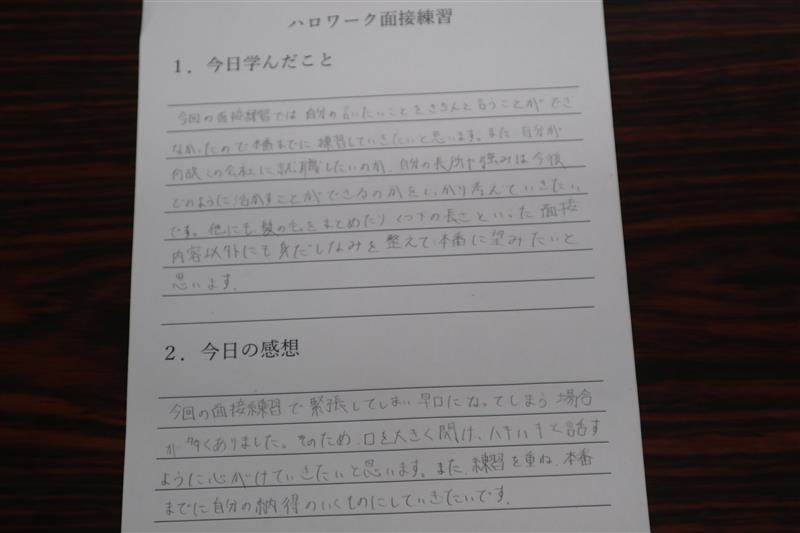 ハロワーク面接練習
1．今日学んだこと
今回の面接練習では自分の言いたいことをきちんと言うことができ
なかったので本番までに練習していきたいと思います。また、自分が
何故この会社に就職したいのか、自分の長所や強みは今後
どのように活かすことができるのかをしっかり考えていきたい
です。他にも髪の毛をまとめたりくつ下の長さといった面接
内容以外にも身だしなみを整えて本番に望みたいと
思います。
2．今日の感想
今回の面接練習で緊張してしまい早口になってしまう場合
が多くありました。そのため、口を大きく開け、ハキハキと話す
ように心がけていきたいと思います。また、練習を重ね、本番
までに自分の納得のいくものにしていきたいです。